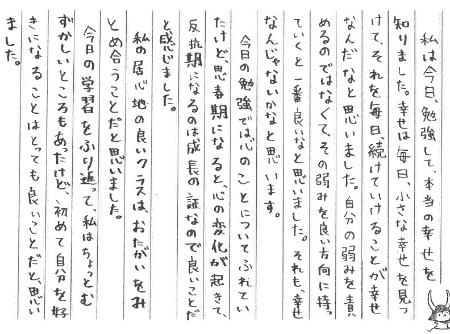 私は今日、勉強して本当の幸せを
知りました。幸せは毎日、小さな幸せを見つ
けて、それを毎日、続けていけることが幸せ
なんだなと思いました。自分の弱みを責
めるのではなくて、その弱みを良い方向に持っ
ていくと一番良いなと思いました。それも、幸せ
なんじゃないかなと思います。
今日の勉強では心のことについてふれてい
たけど、思春期になると、心の変化が起きて、
反抗期になるのは成長の証なので良いことだ
と感じました。
私の居心地の良いクラスは、おたがいをみ
とめ合うことだと思いました。
今日の学習をふり返って、私はちょっとむ
ずかしいところもあったけど、初めて自分を好
きになることはとっても良いことだと、思い
ました。